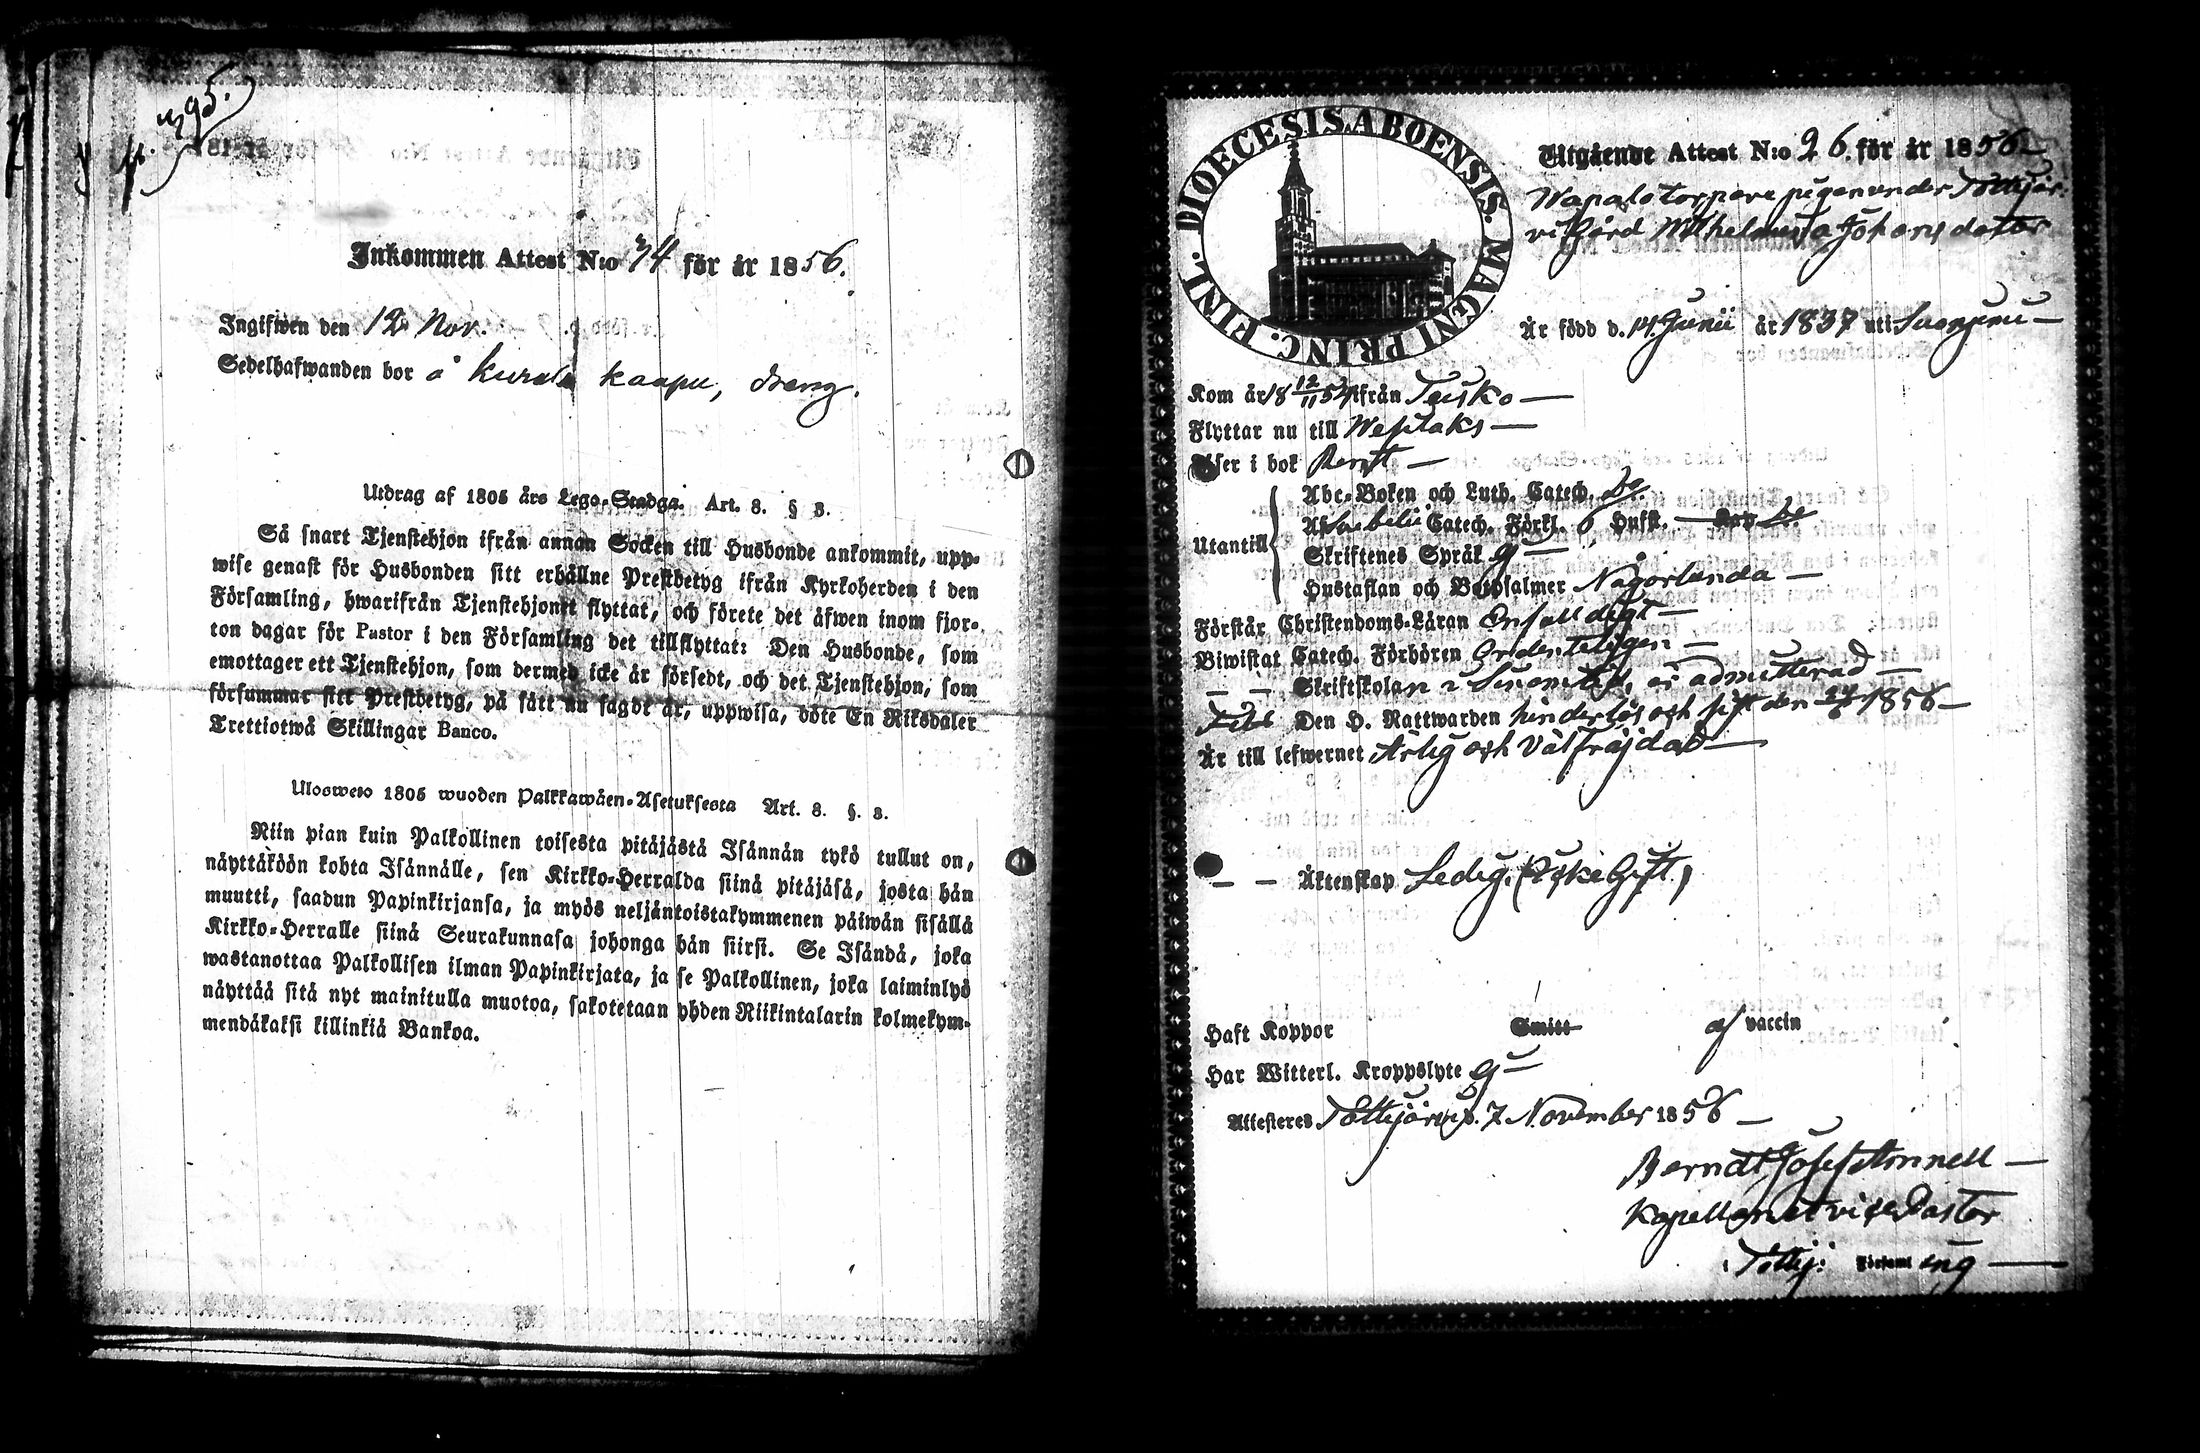 p. 395.
Inkommen Attest N:o 74 för år 1856.
Ingifwen den 12 Nov.
Sedelhafwanden bor å Kurala Kaapu, dräng.
Utdrag af 1805 års Lego-Stadga. Art. 8. § 3.
Så snart Tjenstehjon ifrån annan Socken till Husbonde ankommit, upp-
wise genast för Husbonden sitt erhållne Prestbetyg ifrån Kyrkoherden i den
Församling, hwarifrån Tjenstehjonet flyttat, och förete det äfwen inom fjor-
ton dagar för Pastor i den Församling det tillflyttat: Den Husbonde, som
emottager ett Tjenstehjon, som dermed icke är försedt, och det Tjenstehjon, som
försummar sitt Prestbetyg, på sätt nu sagdt är, uppwisa, böte En Riksdaler
Trettiotwå Skillingar Banco.
Ulosweto 1805 wuoden Palkkawäen-Asetuksesta Art. 8. §. 3.
Niin pian kuin Palkollinen toisesta pitäjästä Isännän tykö tullut on,
näyttäköön kohta Isännälle, sen Kirkko-Herralda siinä pitäjäsä, josta hän
muutti, saadun Papinkirjansa, ja myös neljäntoistakymmenen päiwän sisällä
Kirkko-Herralle siinä Seurakunnasa johonga hän siirsi. Se Isändä, joka
wastanottaa Palkollisen ilman Papinkirjata, ja se Palkollinen, joka laiminlyö
näyttää sitä nyt mainitulla muotoa, sakotetaan yhden Riikintalarin kolmekym-
mendäkaksi killinkiä Bankoa.
DIOECESIS ABOENSIS. MAGNI PRINC. FINL.
Utgående Attest N:o 26. för år 1856
Wapalo torpare pigan under Tottijär-
vi Gård Wilhelmina Johansdotter
Är född d. 14 Junii år 1837 uti Suoniemi
Kom år 18 12/11 54 ifrån Teisko
Flyttar nu till Wesilaks
Läser i bok Rent
Utantill
Abc-Boken och Luth. Catech. do.
Af Svebelii Catech. Förkl. 6 Hufst.
Skriftenes Språk 0
Hustaflan och Botpsalmer Någorlunda
Förstår Christendoms-Läran Enfalldigt
Biwistat Catech. Förhören Ordenteligen
Skriftskolan i sinom tid, är admitterad
Den H. Nattwarden hinderlös och sist den 24/6 1856
Är till lefwernet Ärlig och välfräjdad
Äktenskap Ledig. (Icke Gift)
Haft Koppor Smitt af vaccin
Har Witterl. Kroppslyte 0
Attesteres Tottijärvi d. 7 November 1856
Berndt Josef
Kapellan et vice Pastor
i Tottij: Församl ing